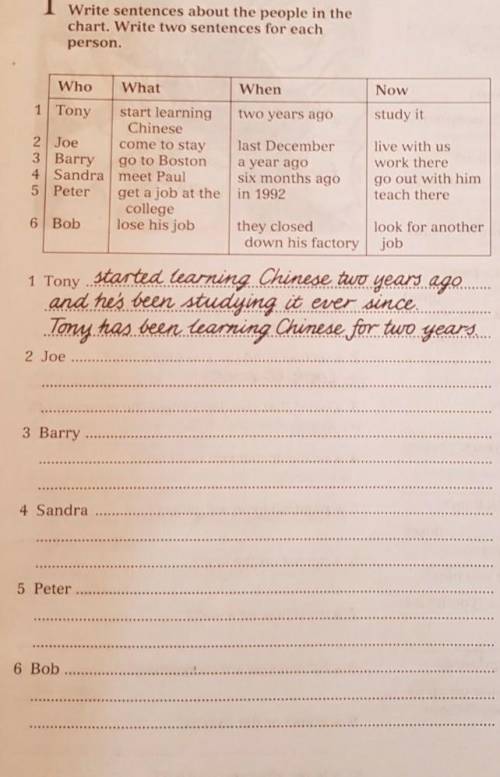 1 Write sentences about the people in the
chart. Write two sentences for each
person.
Who What When Now
1 Tony start learning two years ago study it
Chinese
2 Joe come to stay last December live with us
3 Barry go to Boston a year ago work there
4 Sandra meet Paul six months ago go out with him
5 Peter get a job at the in 1992 teach there
college
6 Bob lose his job they closed look for another
down his factory job
1 Tony started learning Chinese two years ago
and he's been studying it ever since.
Tony has been learning Chinese for two years.
2 Joe
3 Barry
4 Sandra
5 Peter
6 Bob